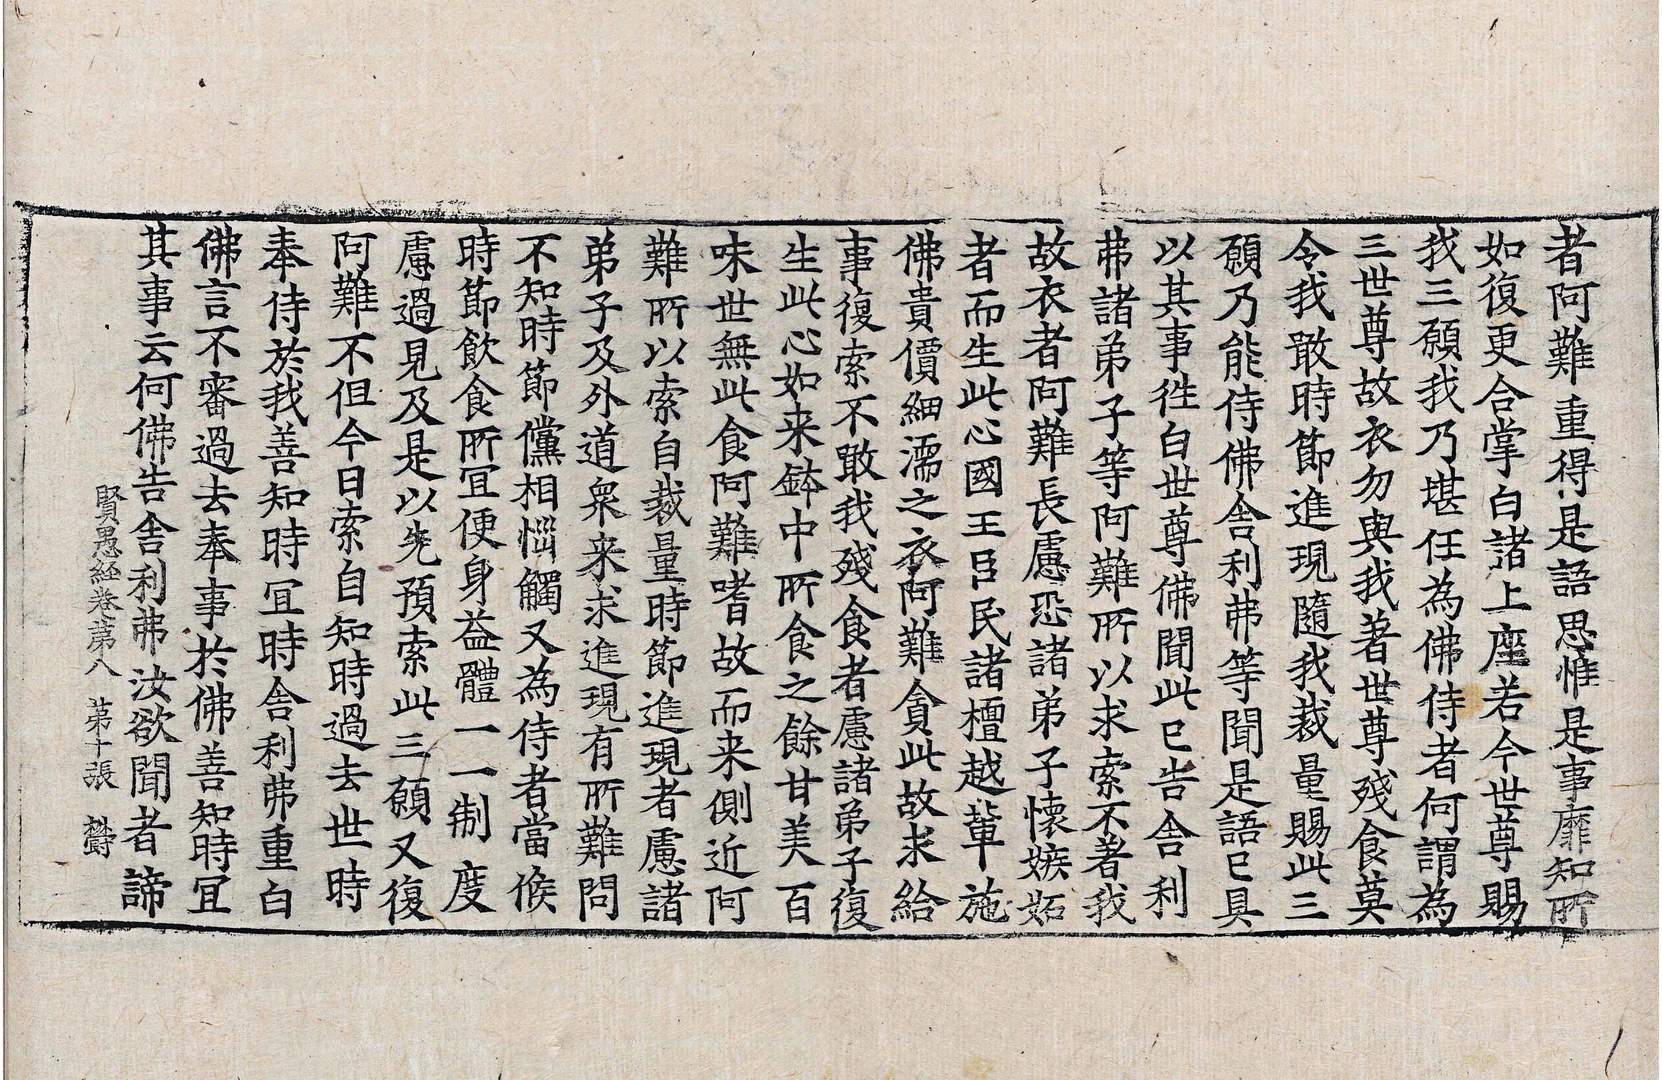 者阿難重得是語思惟是事靡知所
如復更合掌白諸上座若今世尊賜
我三願我乃堪任為佛侍者何謂為
三世尊故衣勿與我著世尊殘食莫
令我敢時節進現隨我裁量賜此三
願乃能侍佛舎利弗等聞是語已具
以其事徃白世尊佛聞此已告舎利
弗諸弟子等阿難所以求索不著我
故衣者阿難長慮恐諸弟子懷嫉妬
者而生此心國王臣民諸檀越輩施
佛貴價細濡之衣阿難貪此故求給
事復索不敢我殘食者慮諸弟子復
生此心如来鉢中所食之餘甘美百
味世無此食阿難嗜故而来側近阿
難所以索自裁量時節進現者慮諸
弟子及外道衆来求進現有所難問
不知時節儻相惱觸又為侍者當候
時節飲食所冝便身益體一一制度
慮過見及是以先預索此三願又復
阿難不但今日索自知時過去世時
奉侍於我善知時冝時舎利弗重白
佛言不審過去奉事於佛善知時冝
其事云何佛告舎利弗汝欲聞者諦
賢愚経卷第八 第十張 欎